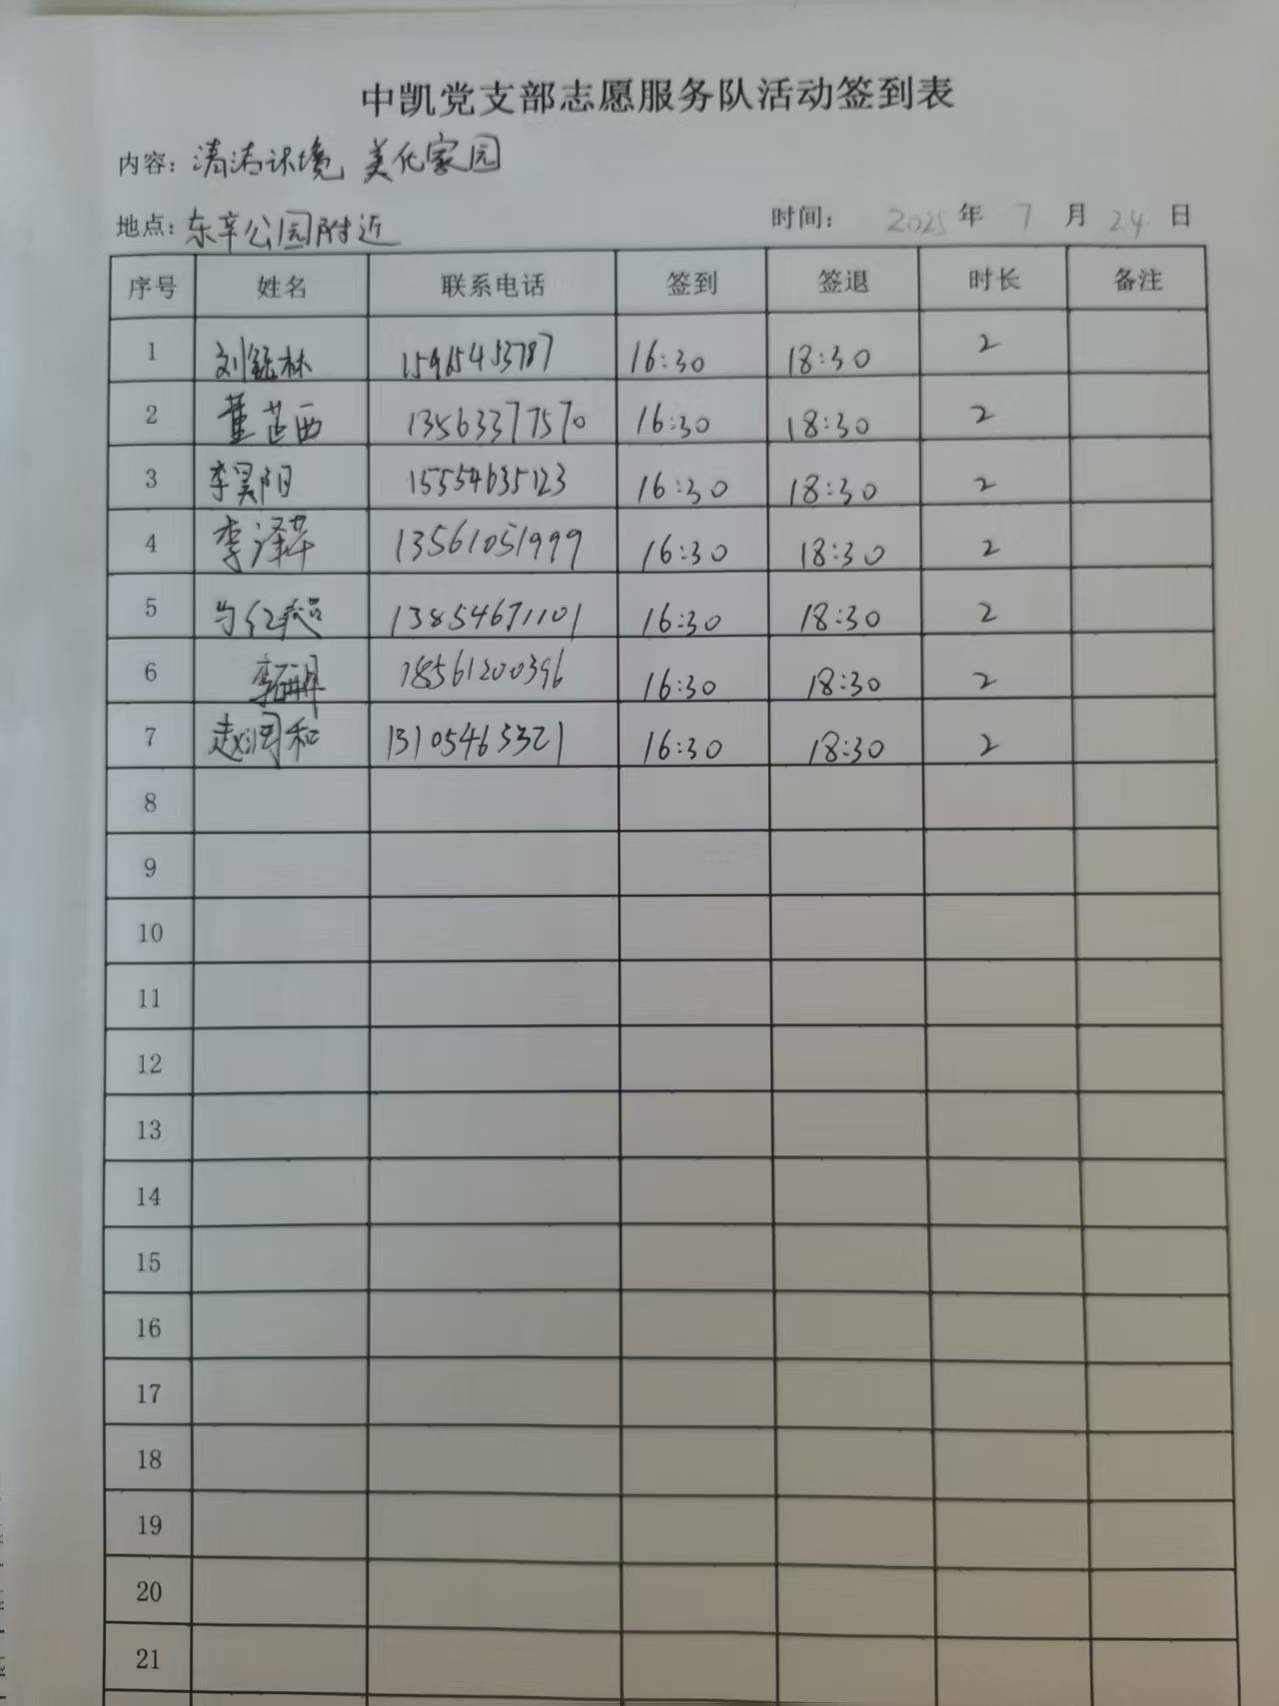 中凯党支部志愿服务队活动签到表
内容：清洁环境 美化家园
地点：东辛公园附近 时间： 2025 年 7 月 24 日
序号 姓名 联系电话 签到 签退 时长 备注
1 刘 林 15965453787 16:30 18:30 2
2 董芷西 13563377570 16:30 18:30 2
3 李昊阳 15554635123 16:30 18:30 2
4 李泽华 13561051999 16:30 18:30 2
5 13854671101 16:30 18:30 2
6 李 18561200396 16:30 18:30 2
7 赵润和 13105465321 16:30 18:30 2
8
9
10
11
12
13
14
15
16
17
18
19
20
21